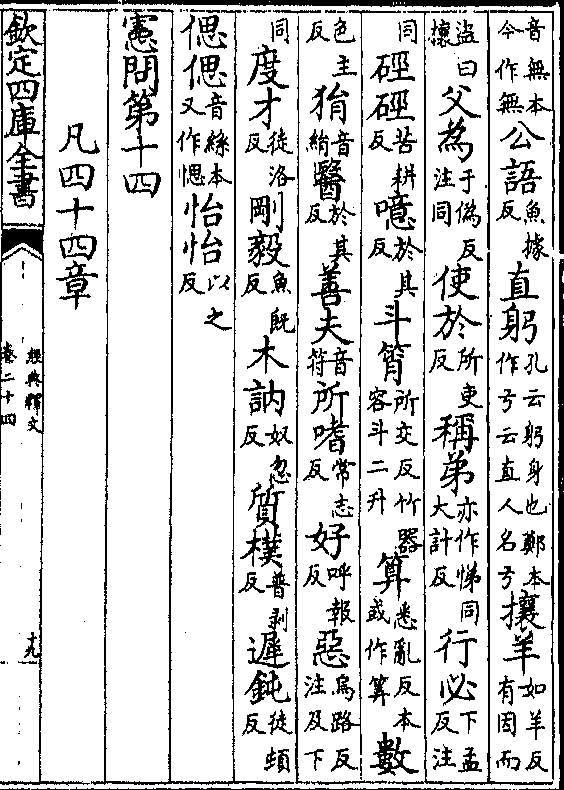 音無本今作無公語魚據反直躬孔云躬身也鄭本作弓云直人名弓攘羊如羊反有因而
盜曰攘父為于偽反注同使於所吏反稱弟亦作悌同大計反行必下孟反注
同硜硜苦耕反噫於其反斗筲所交反竹器容斗二升算悉亂反本或作筭數
色主反狷音絹醫於其反善夫音符所嗜常志反好呼報反惡烏路反注及下
同度才徒洛反剛毅魚旣反木訥奴忽反質樸普剥反遲鈍徒頓反
偲偲音絲本又作愢怡怡以之反
憲問第十四
凡四十四章
欽定四庫全書
經典釋文
卷二十四
十九